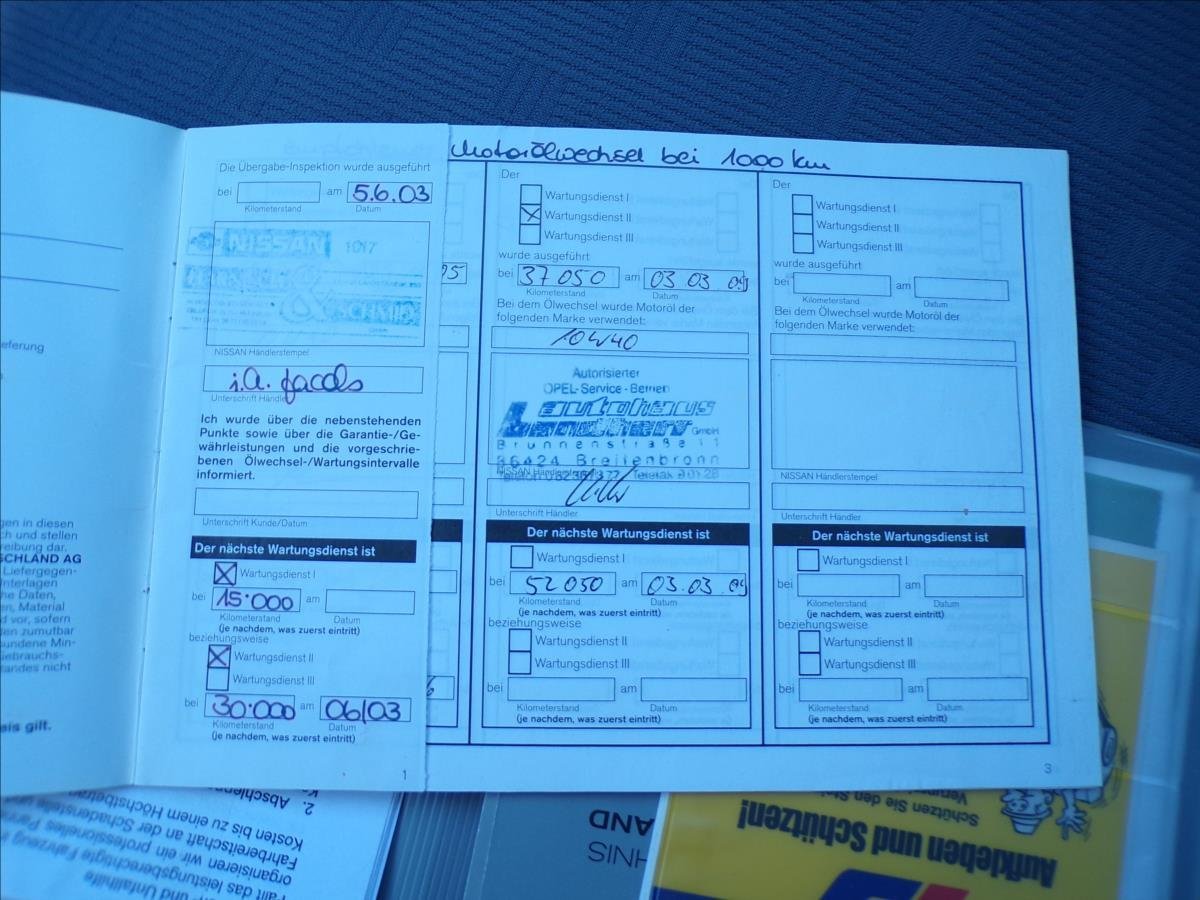 Motorölwechsel bei 1000 km
Die Übergabe-Inspektion wurde ausgeführt
bei am 5.6.03
Kilometerstand Datum
NISSAN 1017
& SCHMID
NISSAN Händlerstempel
i.A. Jacobs
Unterschrift Händler
Ich wurde über die nebenstehenden
Punkte sowie über die Garantie-/Ge-
währleistungen und die vorgeschrie-
benen Ölwechsel-/Wartungsintervalle
informiert.
Unterschrift Kunde/Datum
Der nächste Wartungsdienst ist
Wartungsdienst I
bei 15.000 am
Kilometerstand Datum
(je nachdem, was zuerst eintritt)
beziehungsweise
Wartungsdienst II
Wartungsdienst III
bei 30.000 am 06/03
Kilometerstand Datum
(je nachdem, was zuerst eintritt)
1
05
6
Der
Wartungsdienst I
Wartungsdienst II
Wartungsdienst III
wurde ausgeführt
bei 37050 am 03 03
Kilometerstand Datum
Bei dem Ölwechsel wurde Motoröl der
folgenden Marke verwendet:
10W40
Autorisierter
OPEL-Service-Betrieb
autohaus
GmbH
Brunnenstraße 11
86424 Breitenbronn
NISSAN Händlerstempel
Der nächste Wartungsdienst ist
Wartungsdienst I
bei 52050 am 03.03.
Kilometerstand Datum
(je nachdem, was zuerst eintritt)
beziehungsweise
Wartungsdienst II
Wartungsdienst III
bei am
Kilometerstand Datum
(je nachdem, was zuerst eintritt)
Der
Wartungsdienst I
Wartungsdienst II
Wartungsdienst III
wurde ausgeführt
bei am
Kilometerstand Datum
Bei dem Ölwechsel wurde Motoröl der
folgenden Marke verwendet:
NISSAN Händlerstempel
Unterschrift Händler
Der nächste Wartungsdienst ist
Wartungsdienst I
bei am
Kilometerstand Datum
(je nachdem, was zuerst eintritt)
beziehungsweise
Wartungsdienst II
Wartungsdienst III
bei am
Kilometerstand Datum
(je nachdem, was zuerst eintritt)
3
eferung
gen in diesen
ch und stellen
reibung dar.
SCHLAND AG
Liefergegen-
Unterlagen
he Daten,
en, Material
d vor, sofern
en zumutbar
undene Min-
Gebrauchs-
tandes nicht
eis gilt.
Aufkleben und Schützen!
Schützen Sie den
HINS
AND
2. Abschlepp
Kosten bis zu einem Höchstbetrag
Fahrbereitschaft an der Schadenstelle
organisieren wir ein professionelles
Fällt das leistungsberechtigte Fahrzeug
und Unfallhilfe